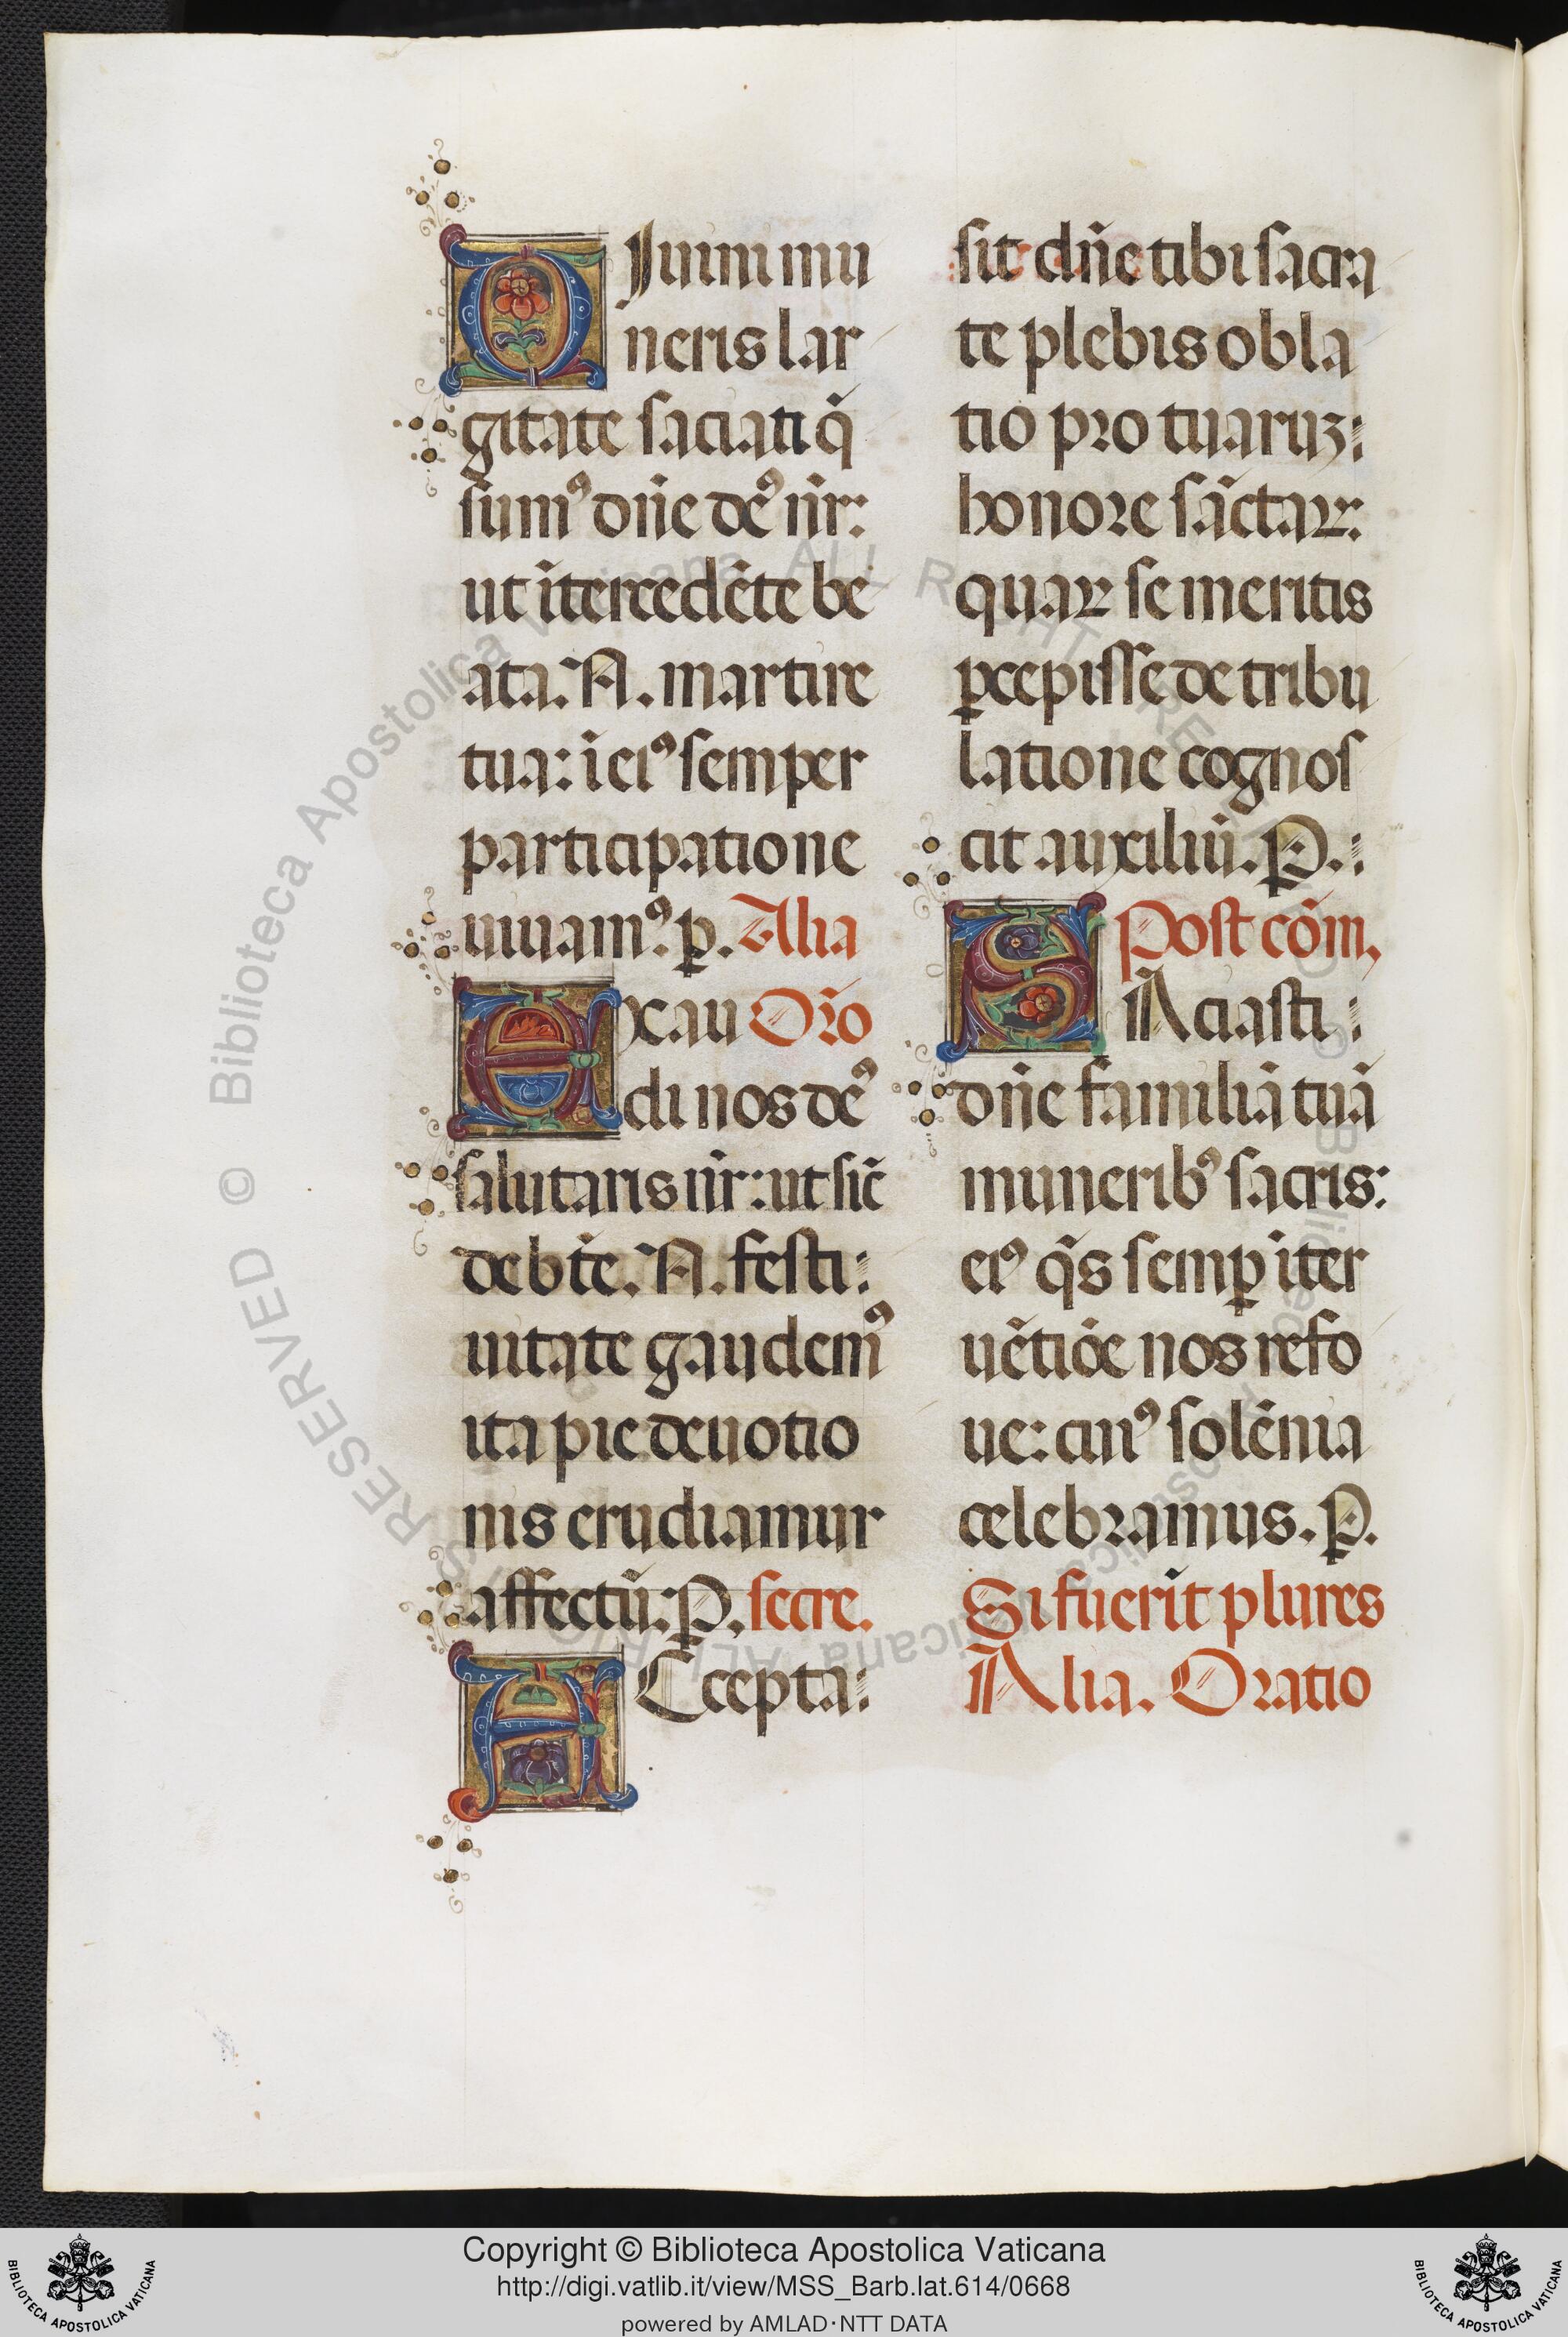 DIuini mu
neris lar
gitate saciati q̄
sumꝰ dn̄e deꝰ nr̄:
ut ītercedēte be
ata. N. martire
tua: ī eiꝰ semper
participatione
uiuamꝰ. p. Alia
Exau Or̄o
di nos deꝰ
salutaris nr̄: ut sic̄
de btē. N. festi:
uitate gaudemꝰ
ita pie deuotio
nis erudiamur
affectū. P. secre.
ACcepta:
sit dn̄e tibi sacra
te plebis obla
tio pro tuaruꝫ:
honore sāctaꝝ:
quaꝝ se meritis
ꝑcepisse de tribu
latione cognos
cit auxiliū. P.:
Post cōm,
SAciasti:
dn̄e familiā tuā
muneribꝰ sacris:
eiꝰ q̄s semꝑ īter
uētiōe nos refo
ue: cuiꝰ solēnia
celebramus. P.
Si fuerīt plures
Alia. Oratio
© Biblioteca Apostolica Vaticana ALL RIGHTS RESERVED
Copyright © Biblioteca Apostolica Vaticana
http://digi.vatlib.it/view/MSS_Barb.lat.614/0668
powered by AMLAD·NTT DATA
BIBLIOTECA APOSTOLICA VATICANA
BIBLIOTECA APOSTOLICA VATICANA